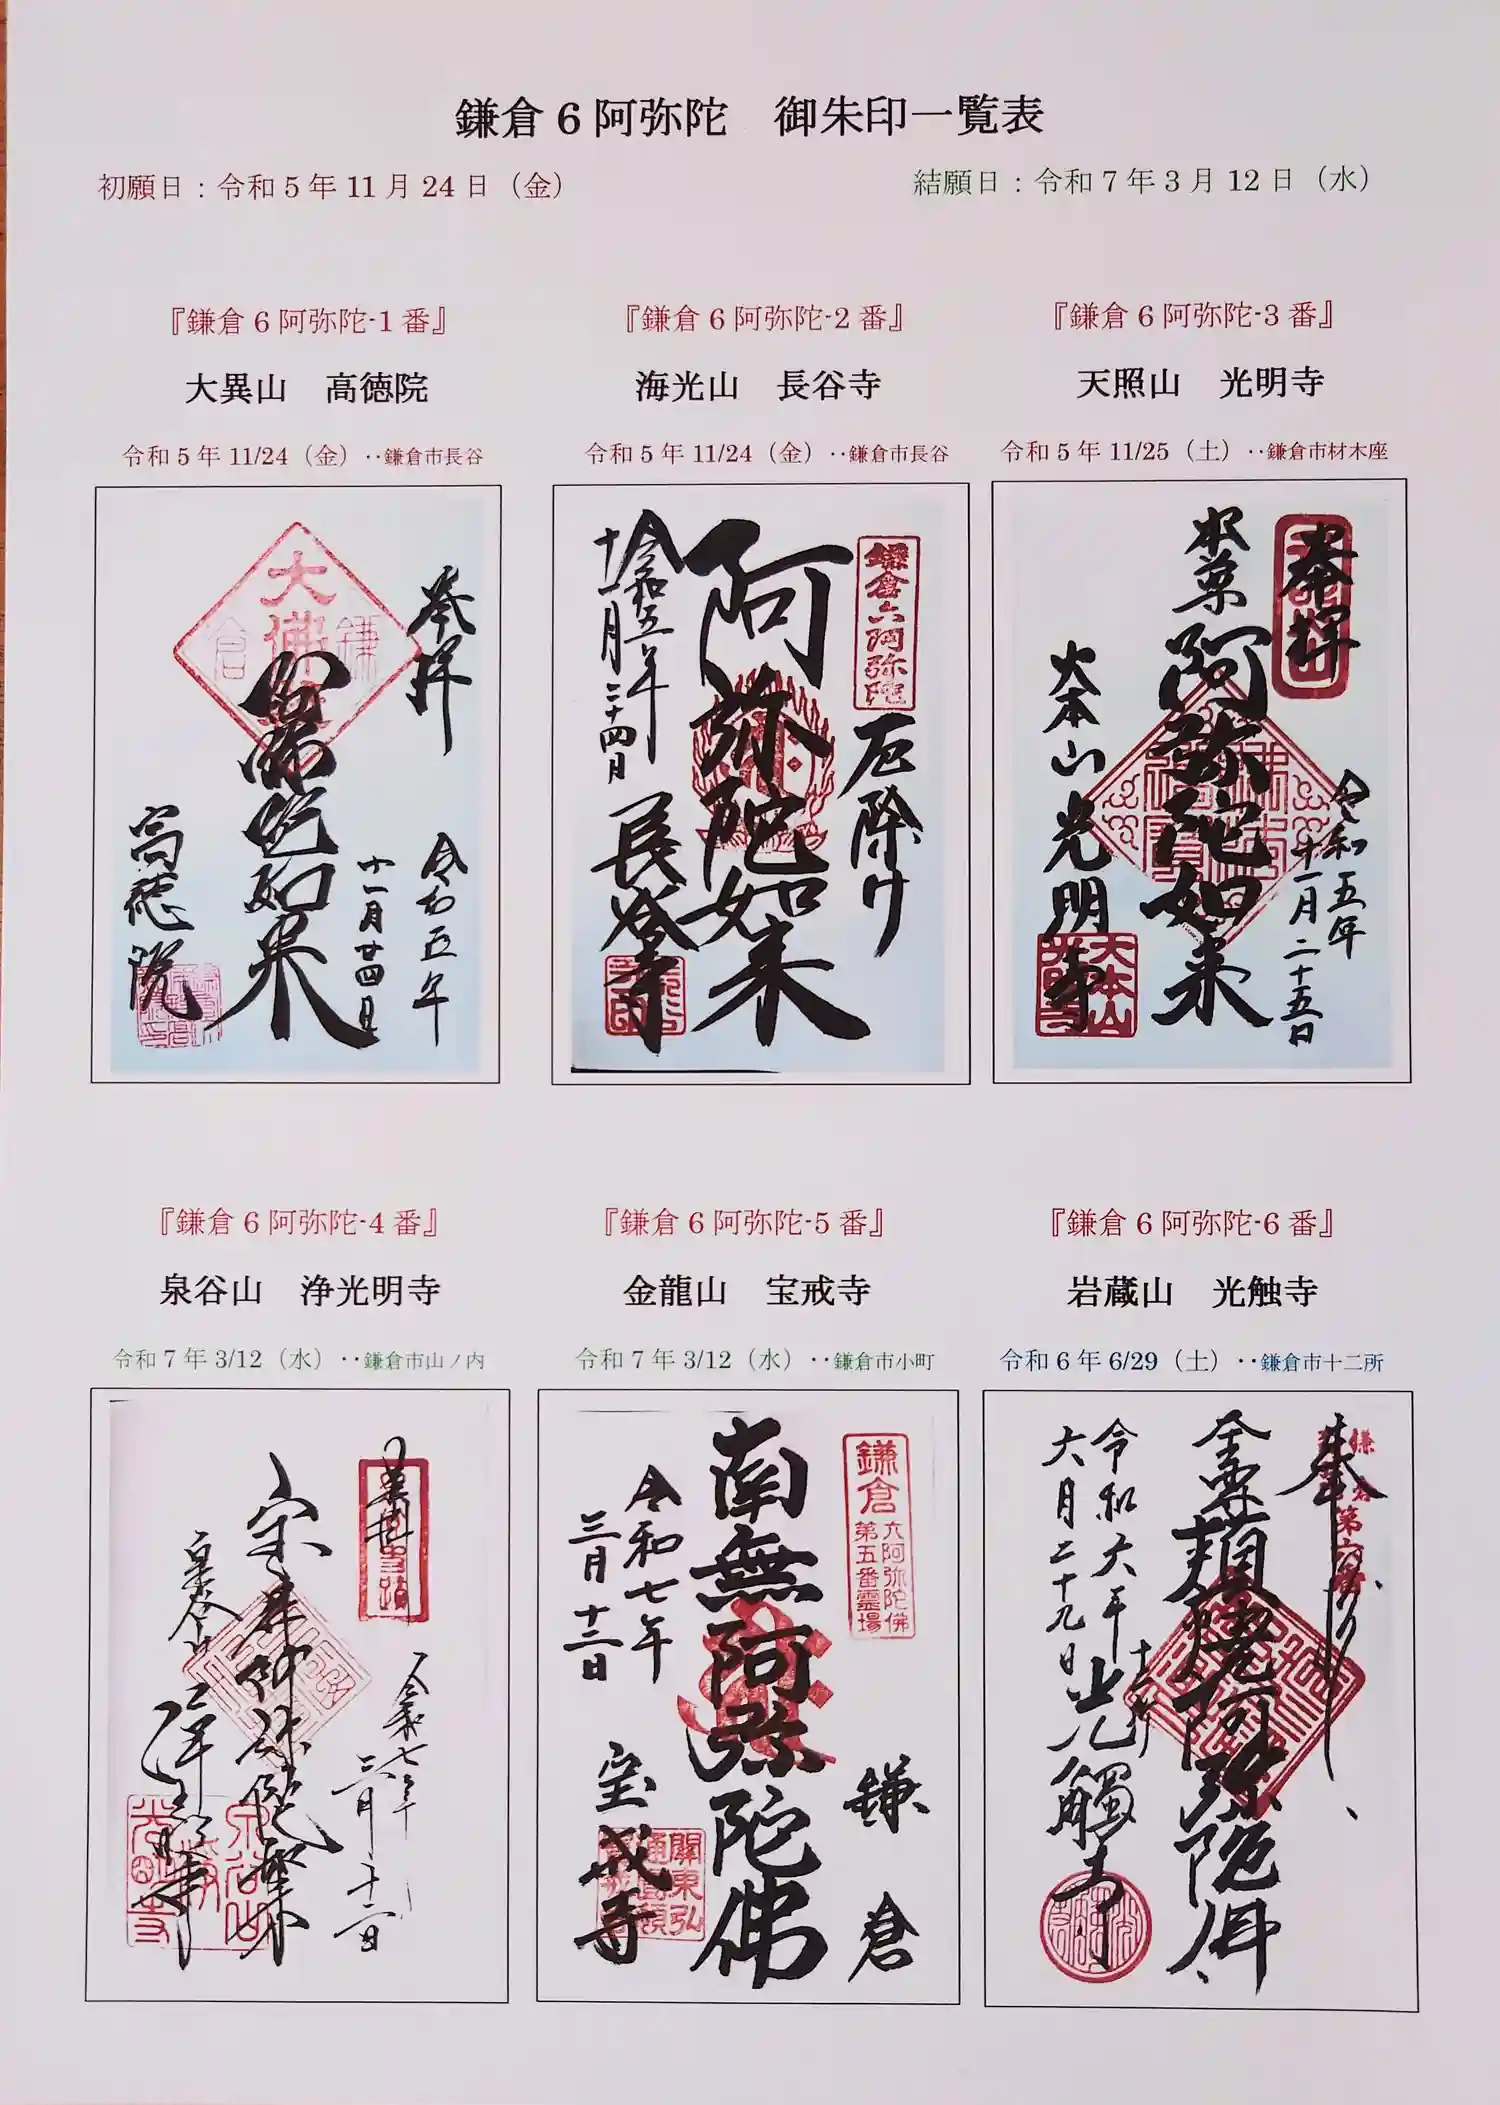 鎌倉6阿弥陀 御朱印一覧表
初願日：令和5年11月24日（金）
結願日：令和7年3月12日（水）
『鎌倉6阿弥陀-1番』
大異山 高徳院
令和5年11/24（金）‥鎌倉市長谷
奉拝
大佛
鎌倉
阿弥陀如来
令和五年
十一月廿四日
高徳院
『鎌倉6阿弥陀-2番』
海光山 長谷寺
令和5年11/24（金）‥鎌倉市長谷
鎌倉六阿弥陀
厄除け
阿弥陀如来
令和五年
十一月二十四日
長谷寺
『鎌倉6阿弥陀-3番』
天照山 光明寺
令和5年11/25（土）‥鎌倉市材木座
奉拝
令和五年
十一月二十五日
阿弥陀如来
大本山光明寺
大本山
『鎌倉6阿弥陀-4番』
泉谷山 浄光明寺
令和7年3/12（水）‥鎌倉市山ノ内
令和七年
三月十二日
泉谷山
浄光明寺
『鎌倉6阿弥陀-5番』
金龍山 宝戒寺
令和7年3/12（水）‥鎌倉市小町
鎌倉
六阿弥陀佛
第五番霊場
鎌倉
南無阿弥陀佛
令和七年
三月十二日
宝戒寺
『鎌倉6阿弥陀-6番』
岩蔵山 光触寺
令和6年6/29（土）‥鎌倉市十二所
奉
頬焼阿弥陀佛
令和六年
六月二十九日
十二所
光觸寺